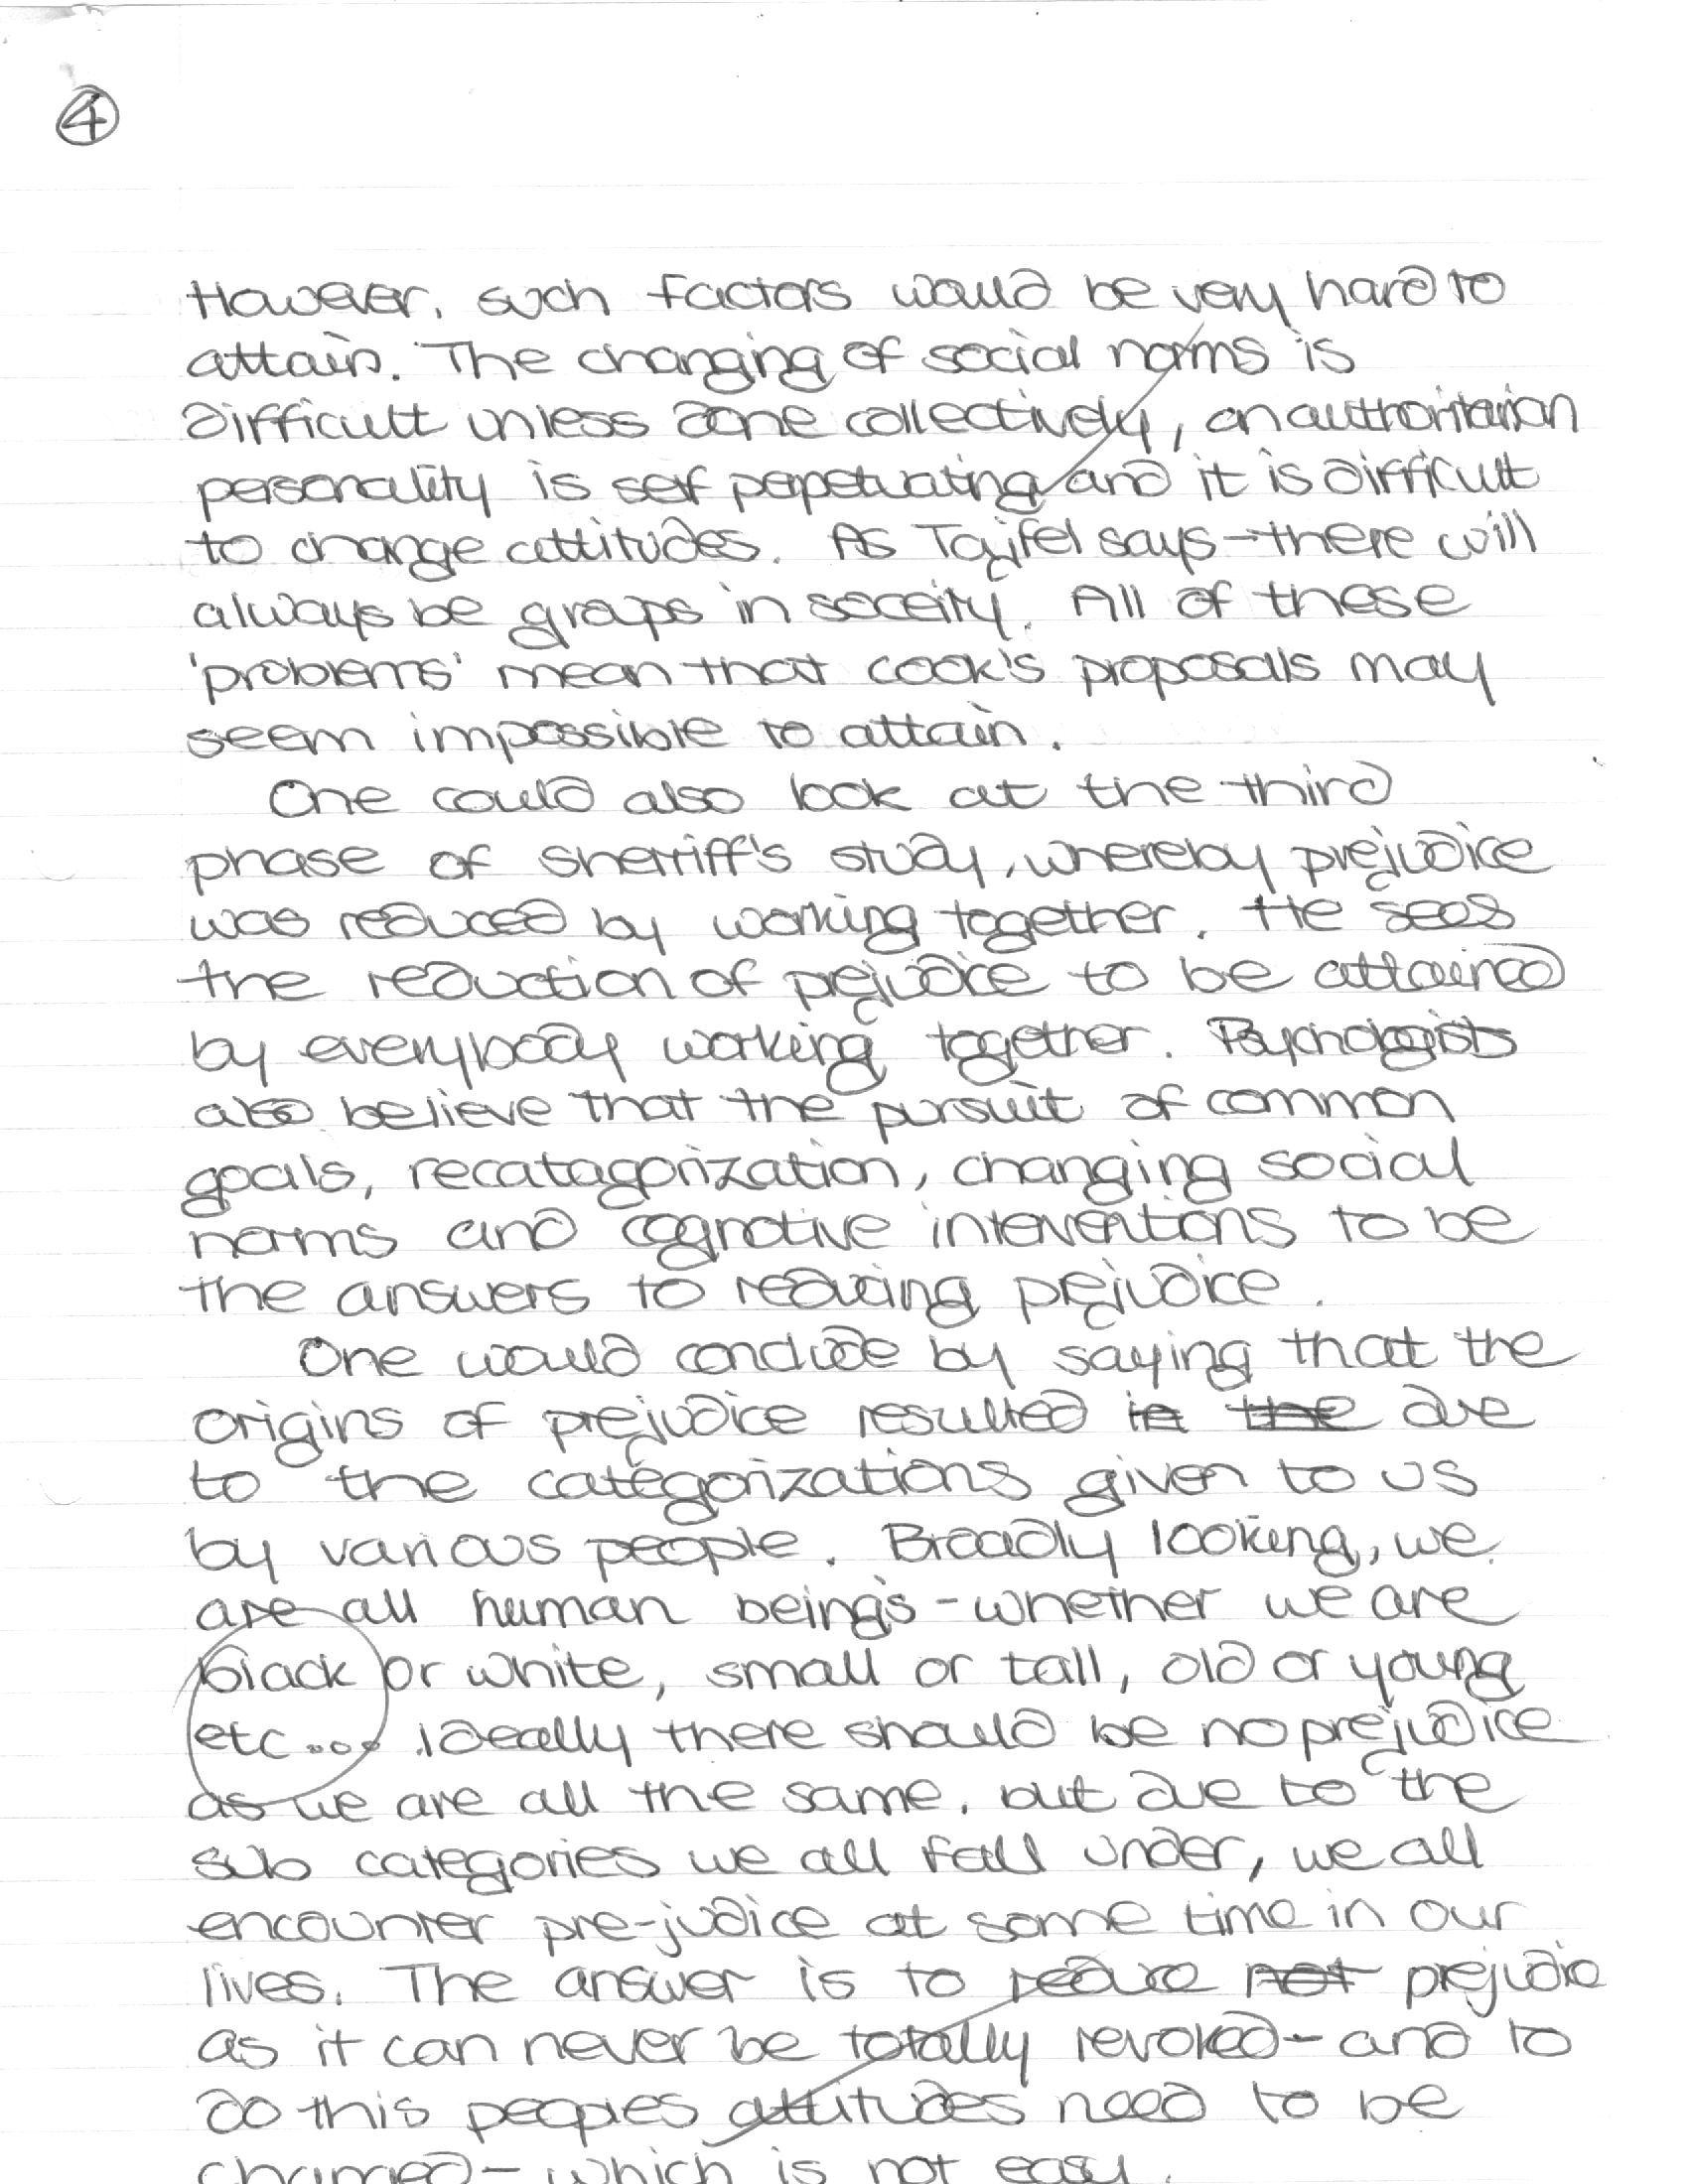 4
However, such factors would be very hard to
attain. The changing of social norms is
difficult unless done collectively, an authoritarian
personality is self perpetuating and it is difficult
to change attitudes. As Tajfel says - there will
always be groups in soceity. All of these
'problems' mean that cook's proposals may
seem impossible to attain.
One could also look at the third
phase of Sherriff's study, whereby prejudice
was reduced by working together. He sees
the reduction of prejudice to be attained
by everybody working together. Psychologists
also believe that the pursuit of common
goals, recatagorization, changing social
norms and cognotive interventions to be
the answers to reducing prejudice.
One would conclude by saying that the
origins of prejudice resulted in the due
to the categorizations given to us
by various people. Broadly looking, we
are all human being's - whether we are
black or white, small or tall, old or young
etc... ideally there should be no prejudice
as we are all the same, but due to the
sub categories we all fall under, we all
encounter pre-judice at some time in our
lives. The answer is to reduce not prejudice
as it can never be totally revoked - and to
do this peoples attitudes need to be
changed - which is not easy.